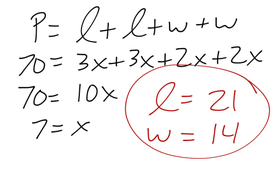 P = l + l + w + w
70 = 3x + 3x + 2x + 2x
70 = 10x
7 = x
l = 21
w = 14